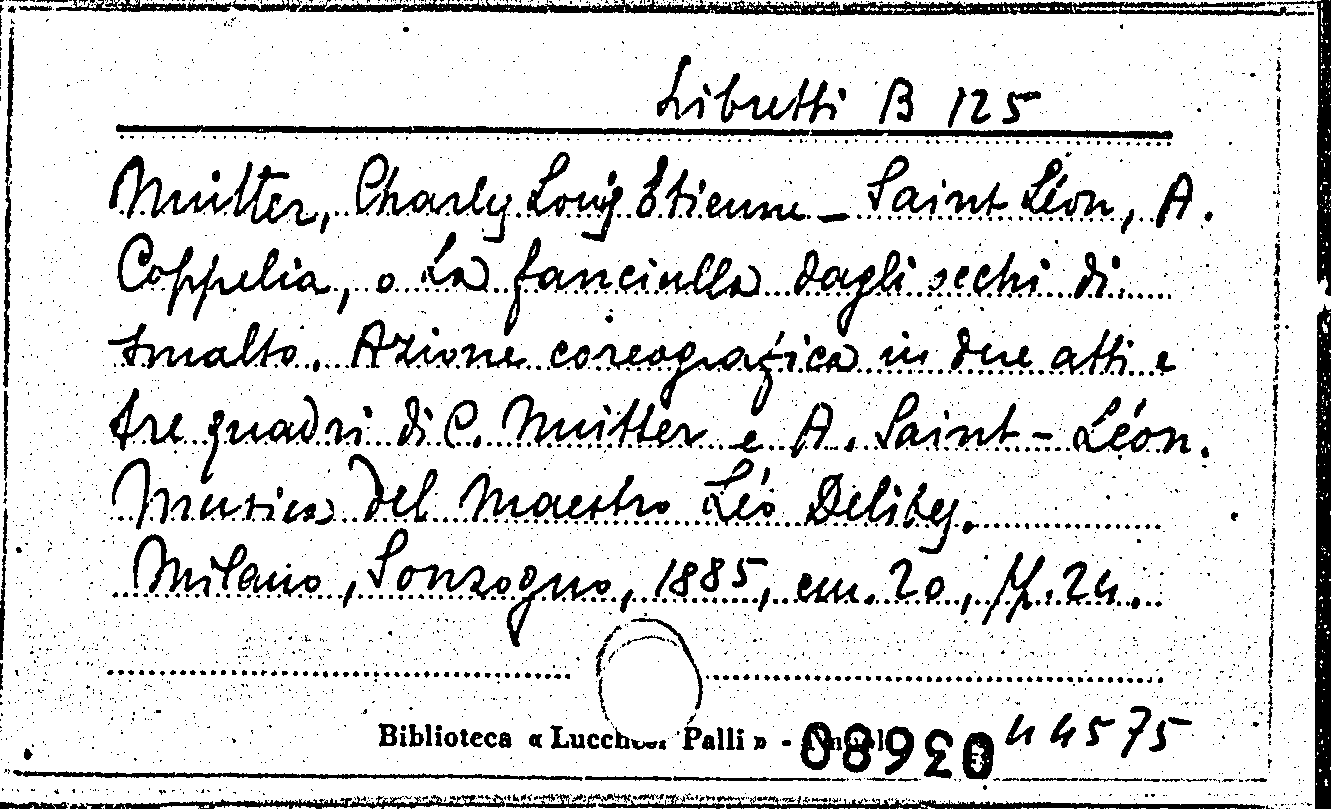 Libretti B 125
Nuitter, Charles Louis Etienne - Saint Léon, A.
Coppelia, o La fanciulla dagli occhi di
smalto. Azione coreografica in due atti e
tre quadri di C. Nuitter e A. Saint-Léon.
Musica del Maestro Léo Delibes.
Milano, Sonzogno, 1885, cm. 20, pp. 24.
Biblioteca « Lucchesi Palli » -
44575